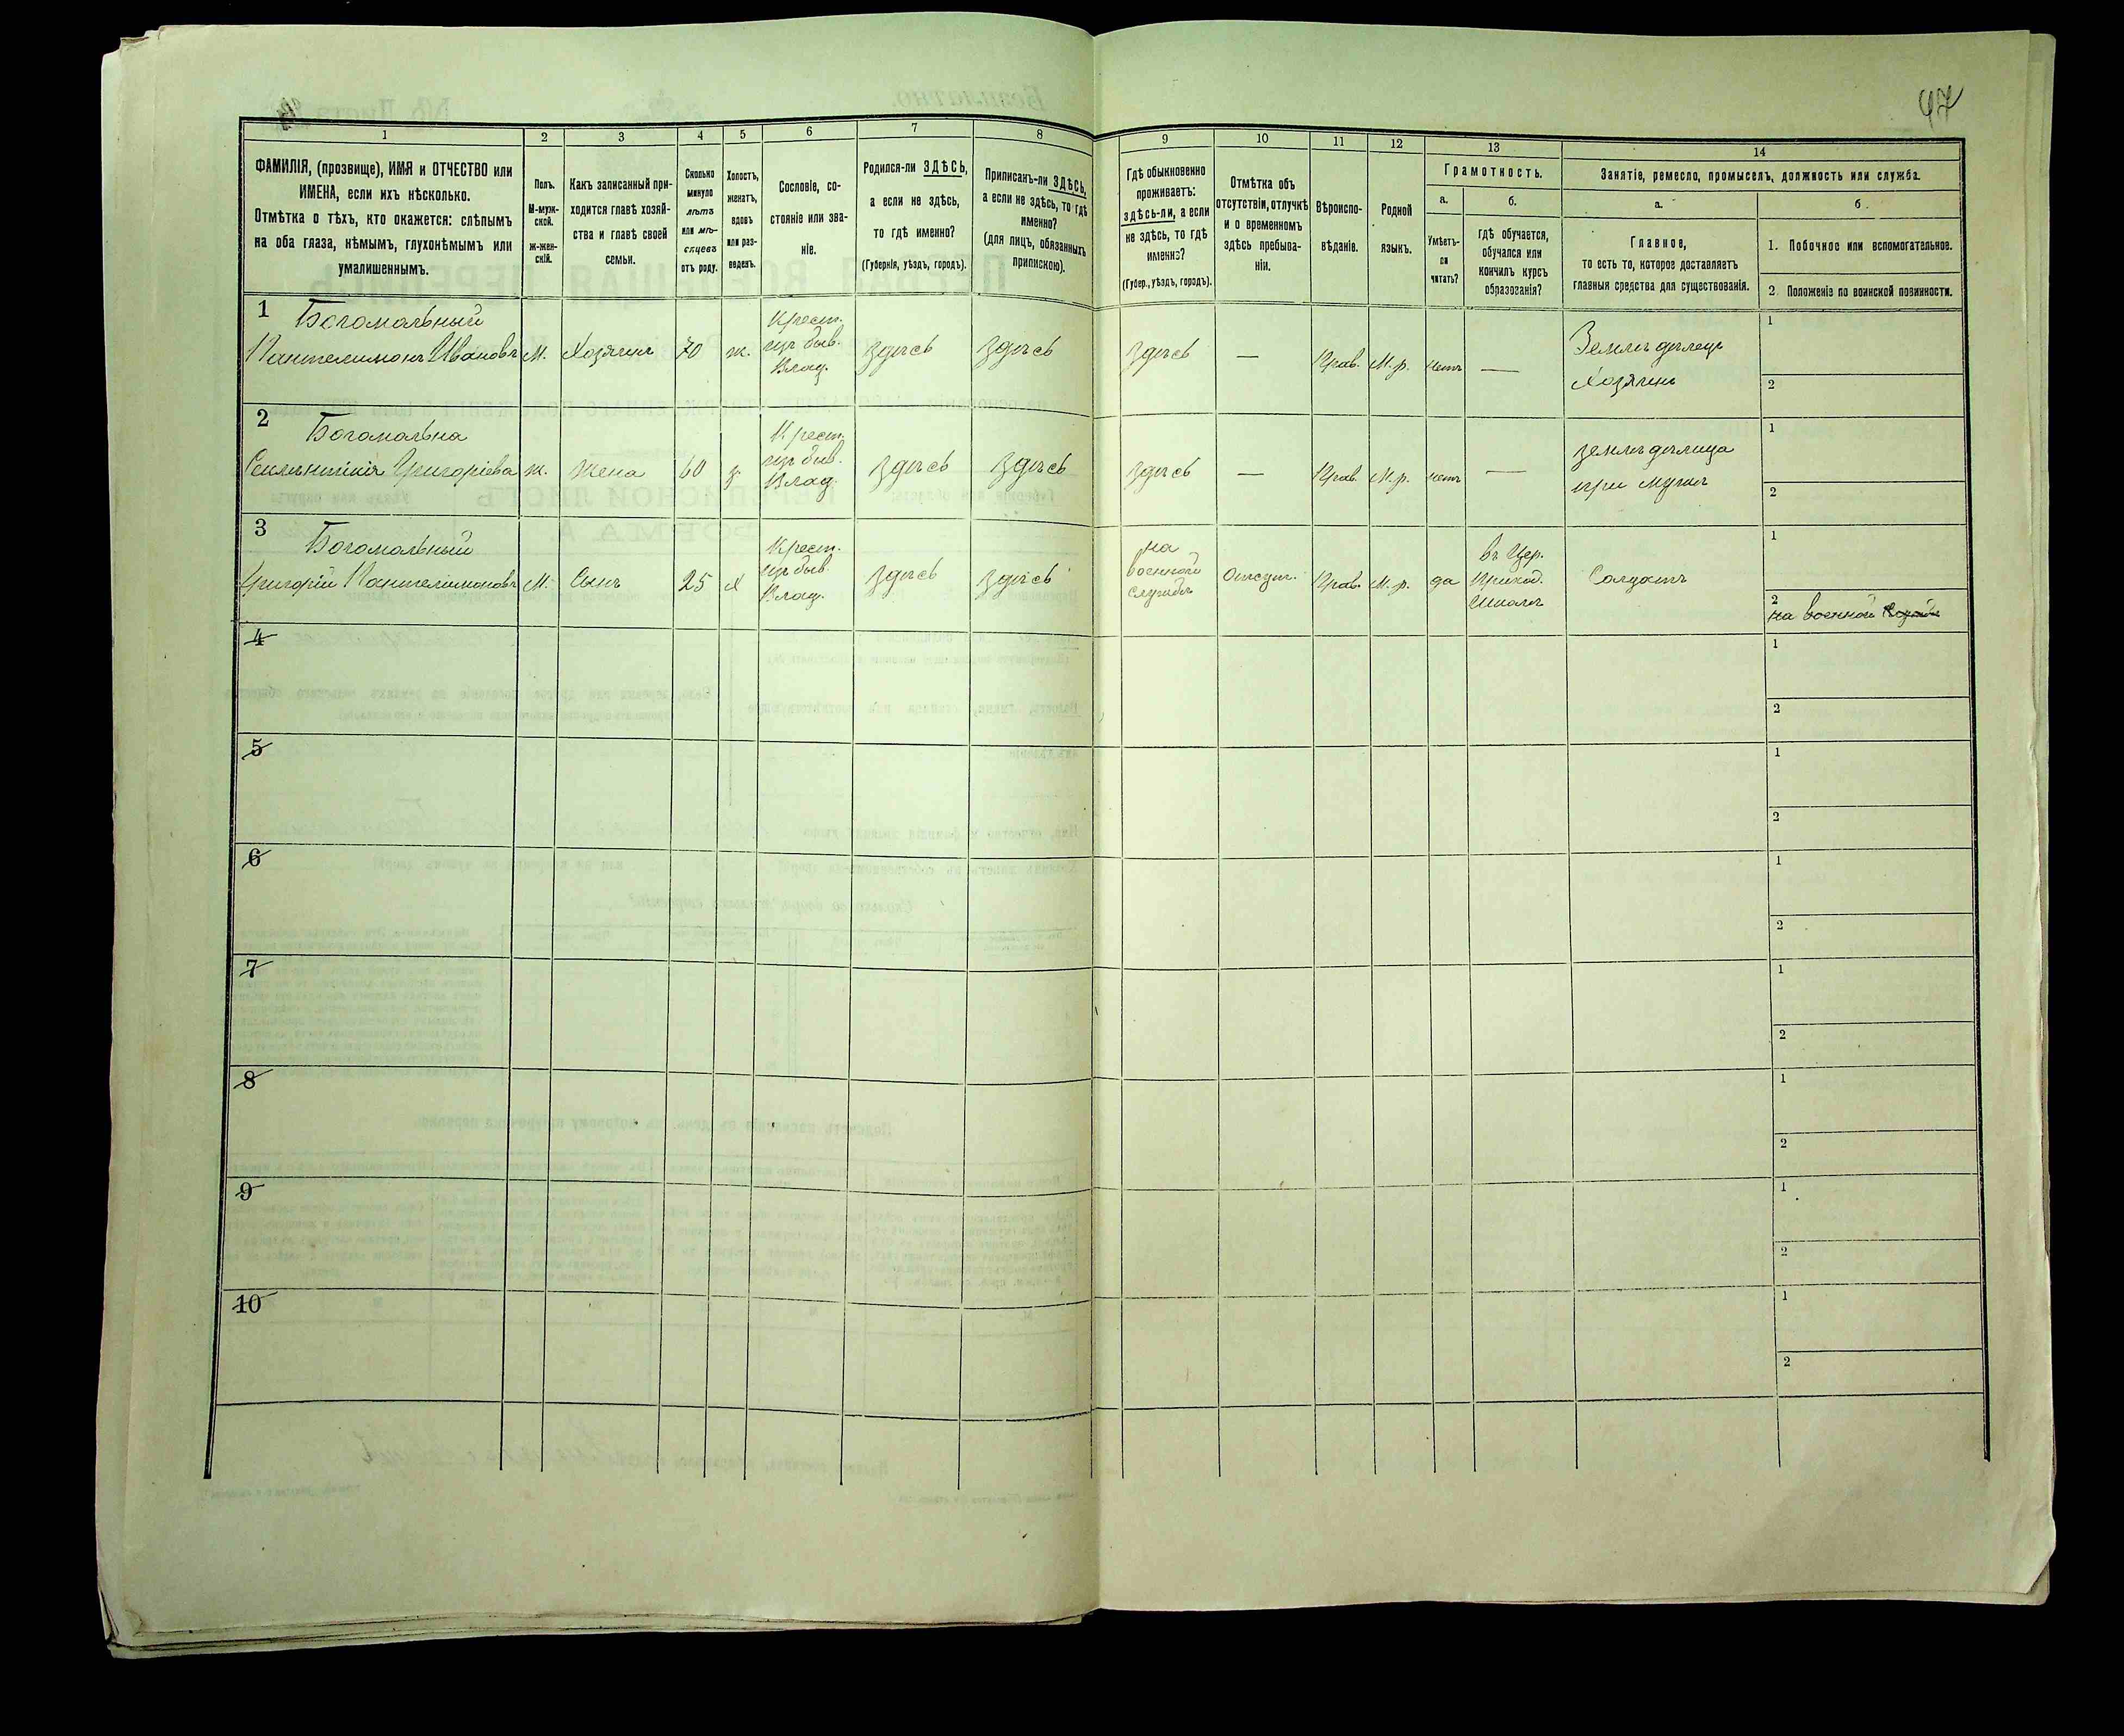 47
1
2
3
4
5
6
7
8
9
10
11
12
13
14
ФАМИЛІЯ, (прозвище), ИМЯ и ОТЧЕСТВО или
ИМЕНА, если ихъ нѣсколько.
Отмѣтка о тѣхъ, кто окажется: слѣпымъ
на оба глаза, нѣмымъ, глухонѣмымъ или
умалишеннымъ.
Полъ.
М-муж-
ской.
Ж-жен-
скій.
Какъ записанный при-
ходится главѣ хозяй-
ства и главѣ своей
семьи.
Сколько
минуло
лѣтъ
или мѣ-
сяцевъ
отъ роду.
Холостъ,
женатъ,
вдовъ
или раз-
веденъ.
Сословіе, со-
стояніе или зва-
ніе.
Родился-ли ЗДѢСЬ,
а если не здѣсь,
то гдѣ именно?
(Губернія, уѣздъ, городъ).
Приписанъ-ли ЗДѢСЬ,
а если не здѣсь, то гдѣ
именно?
(для лицъ, обязанныхъ
припискою).
Гдѣ обыкновенно
проживаетъ:
здѣсь-ли, а если
не здѣсь, то гдѣ
именно?
(Губер., уѣздъ, городъ).
Отмѣтка объ
отсутствіи, отлучкѣ
и о временномъ
здѣсь пребыва-
ніи.
Вѣроиспо-
вѣданіе.
Родной
языкъ.
Грамотность.
а.
Умѣетъ-
ли
читать?
б.
гдѣ обучается,
обучался или
кончилъ курсъ
образованія?
Занятіе, ремесло, промыселъ, должность или служба.
а.
Главное,
то есть то, которое доставляетъ
главныя средства для существованія.
б.
1. Побочное или вспомогательное.
2. Положеніе по воинской повинности.
1 Богомольный
Пантелимонъ Ивановъ
М.
Хозяинъ
70
ж.
Крест.
изъ быв.
Влад.
здѣсь
здѣсь
здѣсь
—
Прав.
М.р.
нетъ
—
Земледѣлецъ
Хозяинъ
1
2
2 Богомольна
Григоріева
ж.
Жена
60
з.
Крест.
изъ быв.
Влад.
здѣсь
здѣсь
здѣсь
—
Прав.
М.р.
нетъ
—
земледѣлица
при мужѣ
1
2
3 Богомольный
Григорій Пантелимоновъ
М.
Сынъ
25
Х
Крест.
изъ быв.
Влад.
здѣсь
здѣсь
на
военной
службѣ
Отсут.
Прав.
М.р.
да
въ Цер.
Приход.
Школѣ
Солдатъ
1
2
на военной
4
1
2
5
1
2
6
1
2
7
1
2
8
1
2
9
1
2
10
1
2